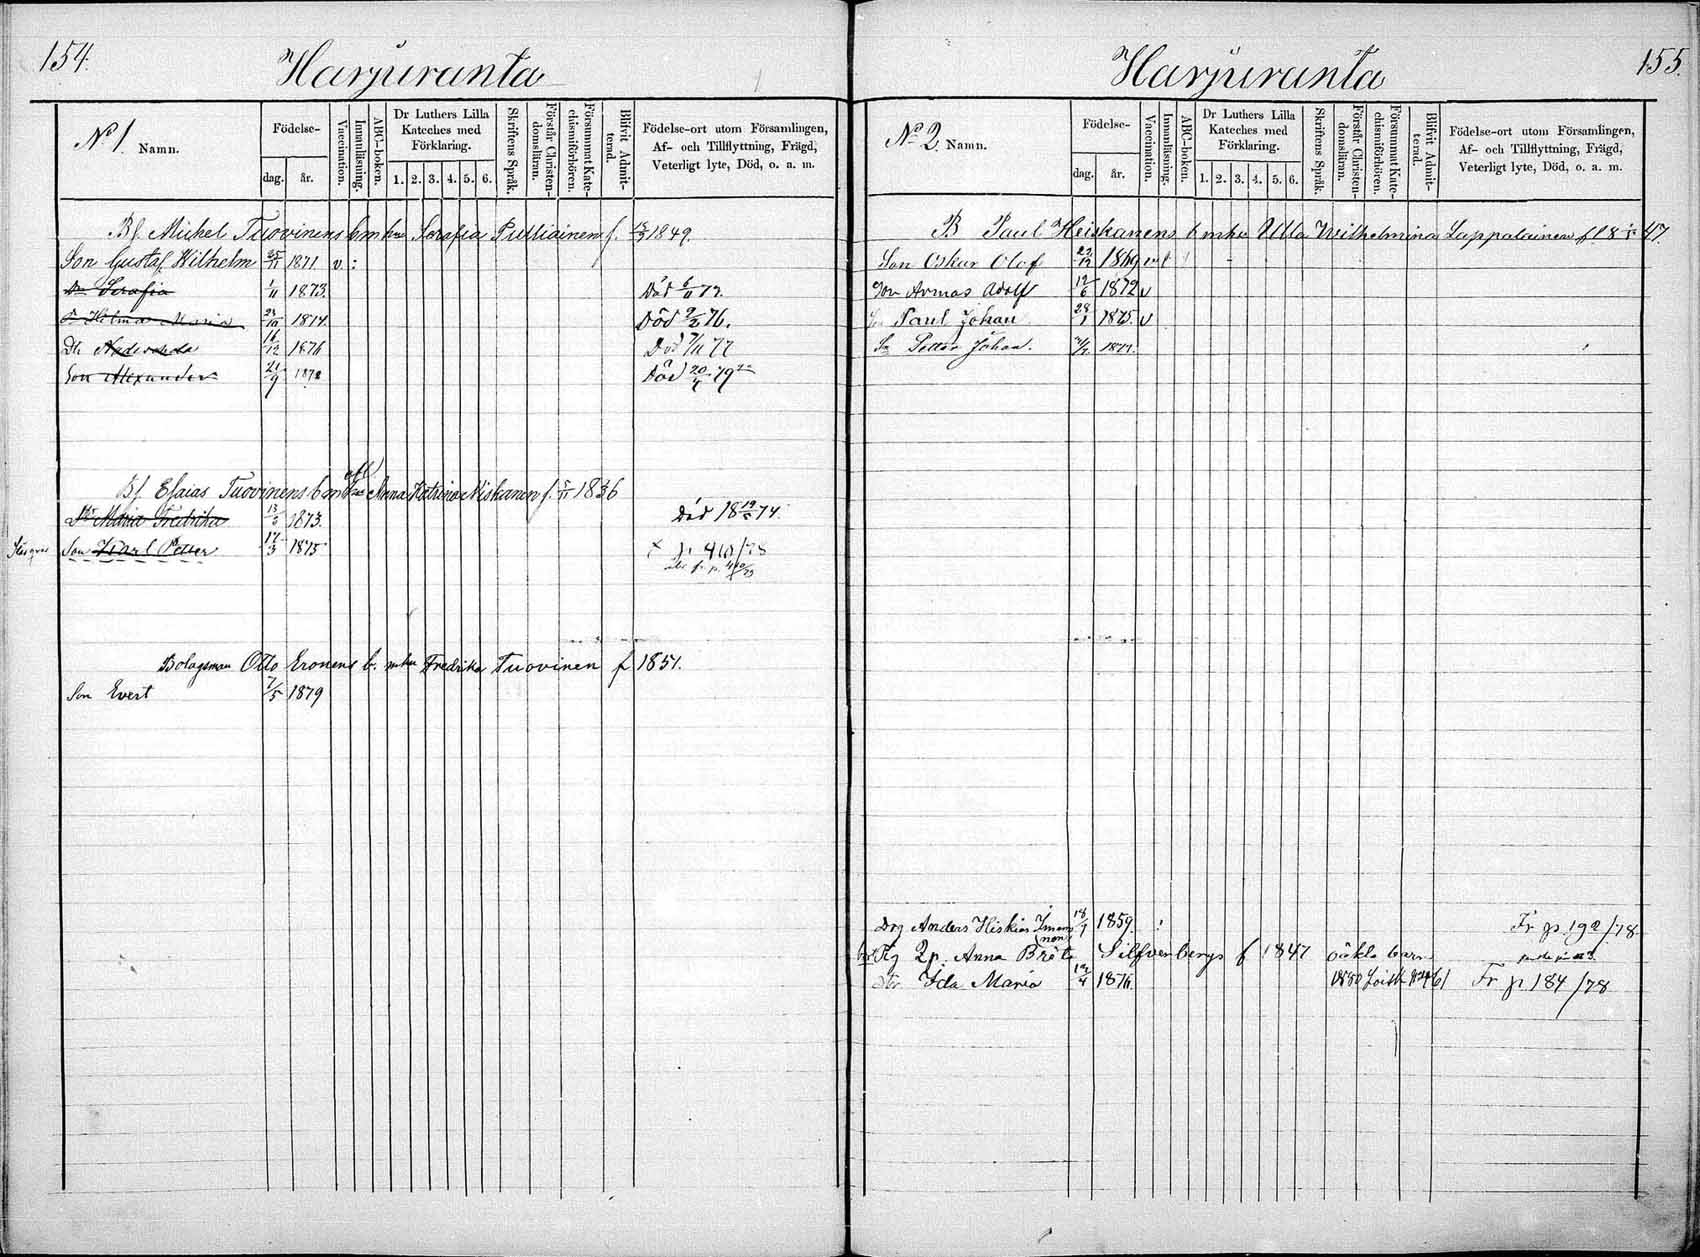 154.
Harjuranta
No 1. Namn.
Födelse-
dag.
år.
Vaccination.
Innanläsning.
ABC-boken.
Dr Luthers Lilla
Kateches med
Förklaring.
1. 2. 3. 4. 5. 6.
Skriftens Språk.
Förstår Christen-
domsläran.
Försummat Kate-
chismiförhören.
Blifvit Admit-
terad.
Födelse-ort utom Församlingen,
Af- och Tillflyttning, Frägd,
Veterligt lyte, Död, o. a. m.
Bf. Michel Tuovinens b m hu Serafia Pulliainen f. 1849.
Son Gustaf Wilhelm 25/11 1871 v :
Dr Serafia 1/11 1873. Död 6/11 73.
Dr Hilma Maria 23/10 1874. Död 9/2 76.
Dr 16/12 1876 Död 7/11 77
Son Alexander 21/9 1878 Död 20/4 79
Bf. Esaias Tuovinens b m hu Anna Katrina Niskanen f. 1836
Dr Maria Fredrika 13/5 1873. Död 18 19/5 74.
Son Karl Petter 17/3 1875
Bolagsman Otto Eronens b. m hu Fredrika Tuovinen f 1851.
Son Evert 7/5 1879
155.
Harjuranta
No 2. Namn.
Födelse-
dag.
år.
Vaccination.
Innanläsning.
ABC-boken.
Dr Luthers Lilla
Kateches med
Förklaring.
1. 2. 3. 4. 5. 6.
Skriftens Språk.
Förstår Christen-
domsläran.
Försummat Kate-
chismiförhören.
Blifvit Admit-
terad.
Födelse-ort utom Församlingen,
Af- och Tillflyttning, Frägd,
Veterligt lyte, Död, o. a. m.
B Paul Heiskanens b m hu Ulla Wilhelmina Lappalainen 47.
Son Oskar Olof 22/12 1869
Son Armas Adolf 12/6 1872 v
Paul Johan 28/1 1875. v
Sn Petter Johan. 1877.
Drg Anders Hiskias 18/1 1859. Fr p. 192/78
Pig 2 p. Anna Brita Silfvenbergs f 1847 oäkta barn
Dr Ida Maria 1876. Fr p. 184/78